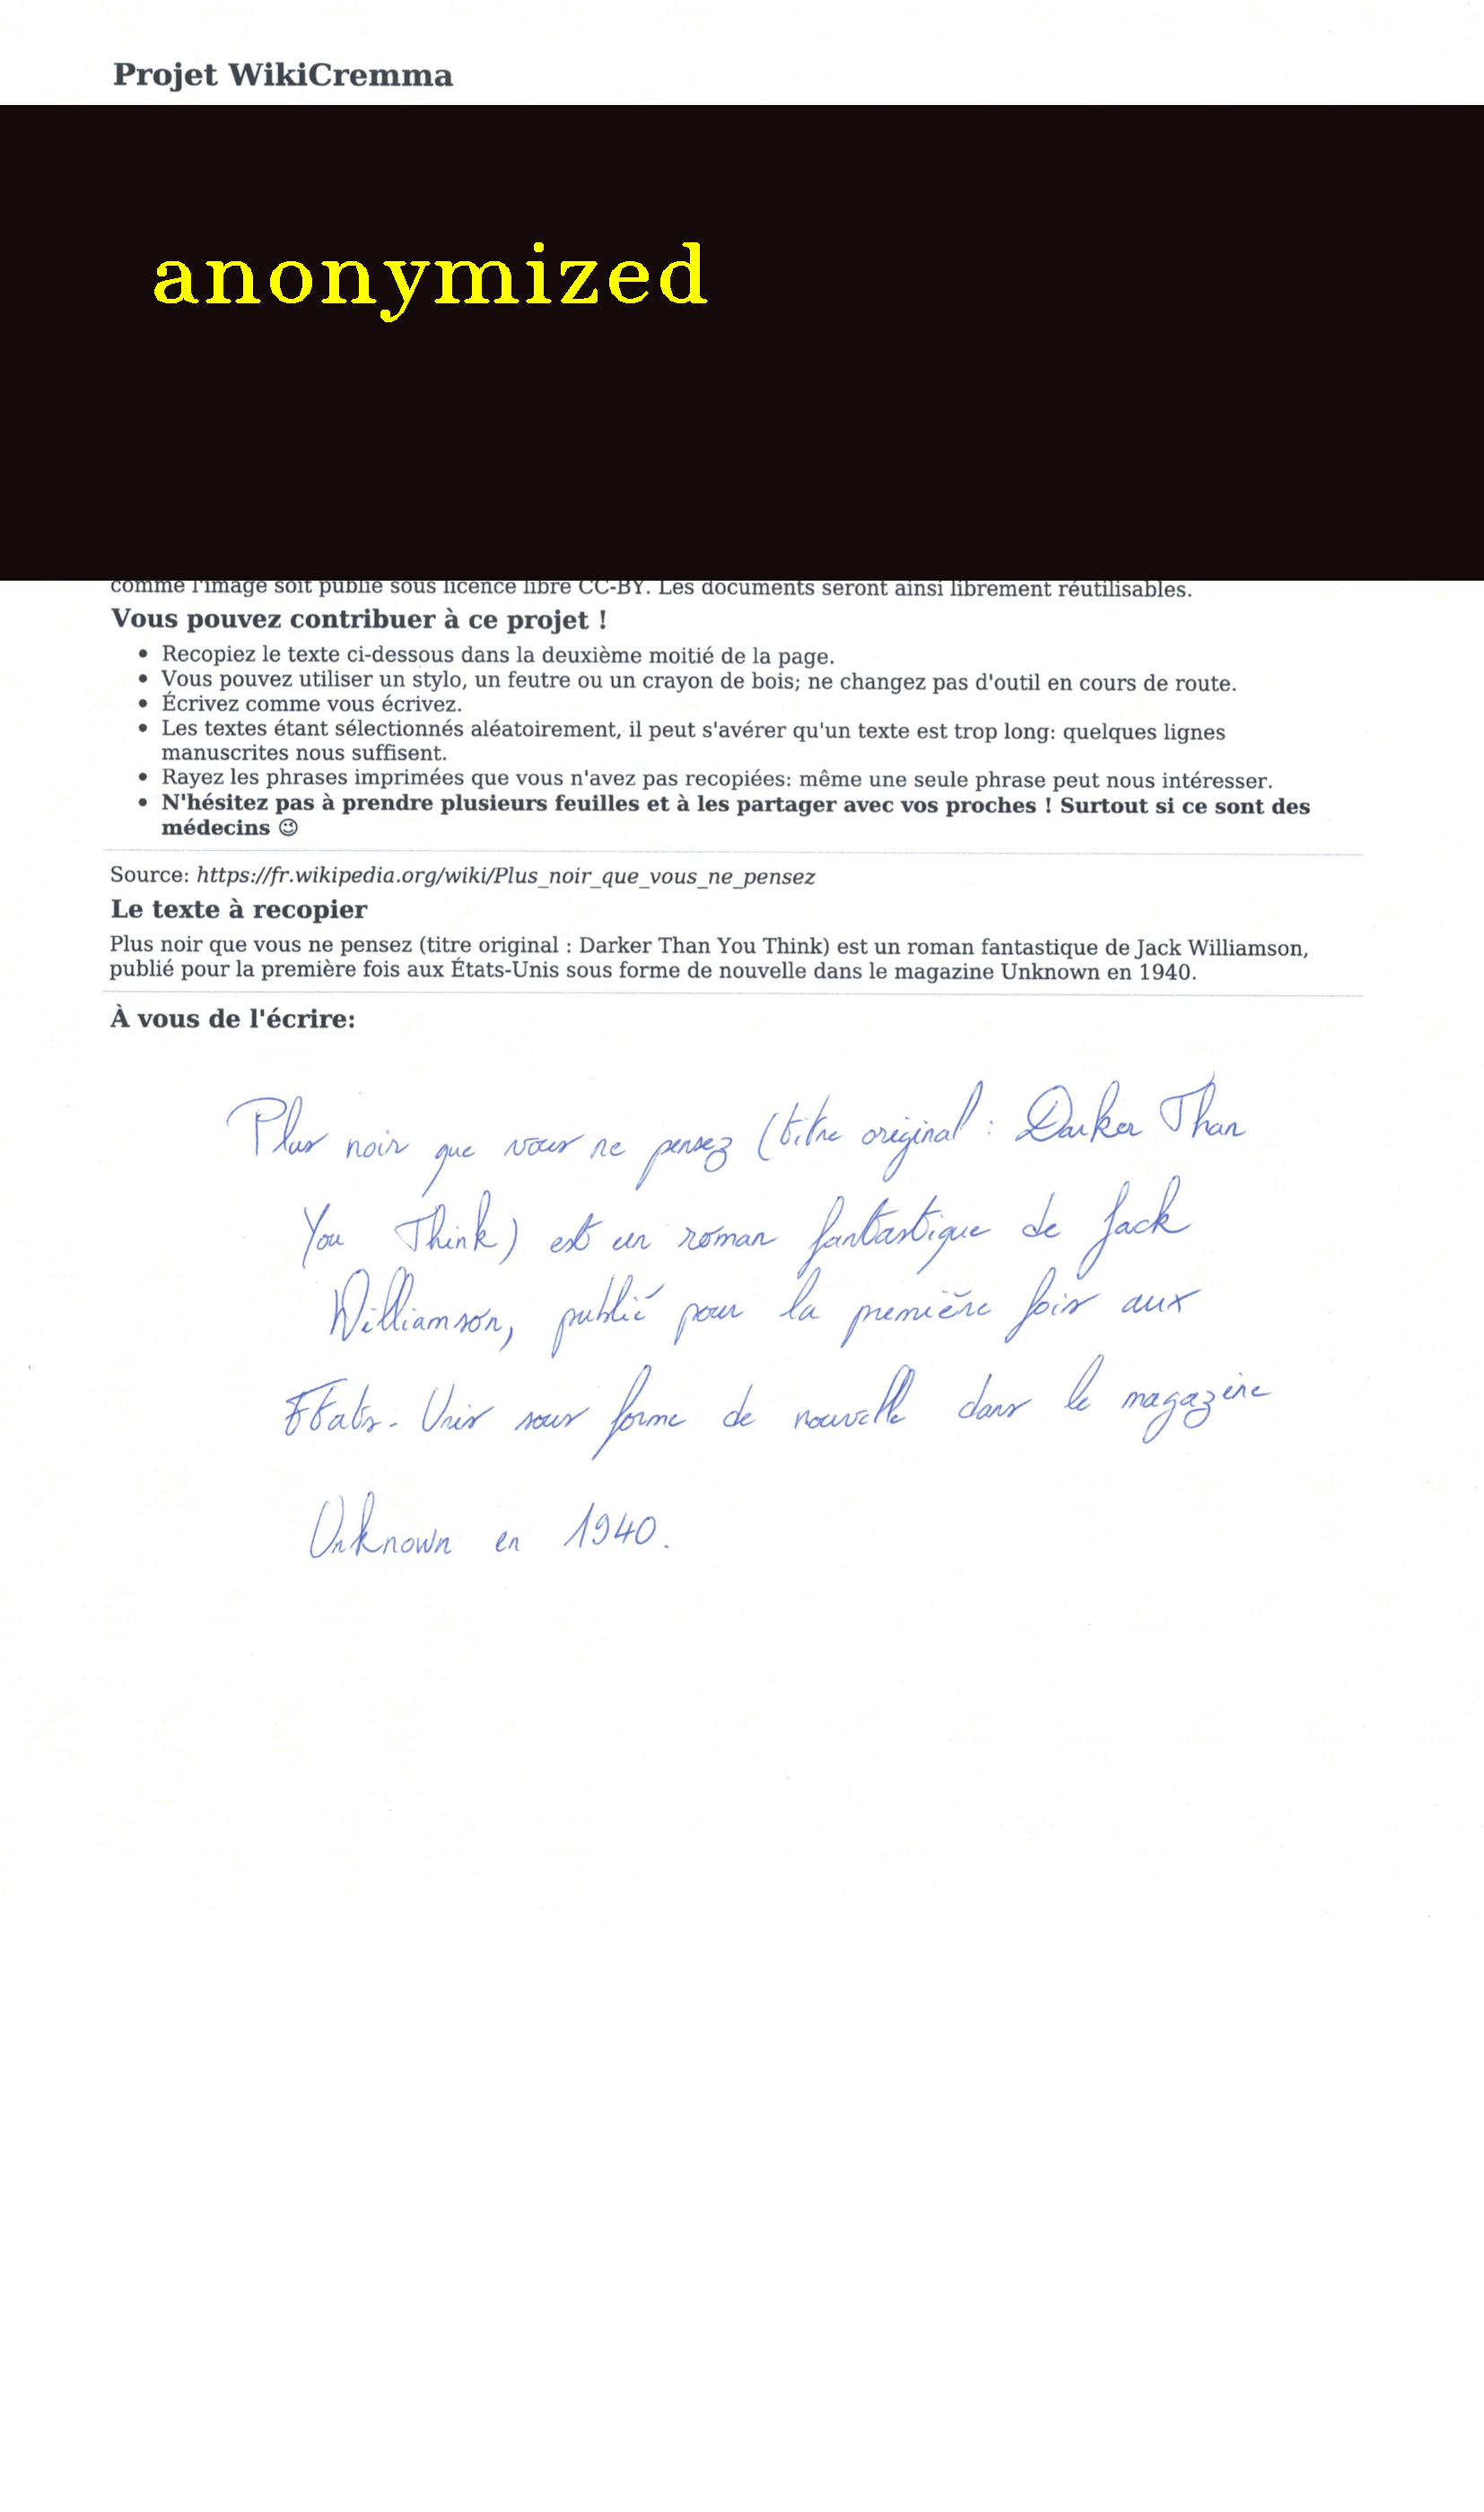 Projet WikiCremma
anonymized
comme l'image soit publié sous licence libre CC-BY. Les documents seront ainsi librement réutilisables.
Vous pouvez contribuer à ce projet !
• Recopiez le texte ci-dessous dans la deuxième moitié de la page.
• Vous pouvez utiliser un stylo, un feutre ou un crayon de bois; ne changez pas d'outil en cours de route.
• Écrivez comme vous écrivez.
• Les textes étant sélectionnés aléatoirement, il peut s'avérer qu'un texte est trop long: quelques lignes
manuscrites nous suffisent.
• Rayez les phrases imprimées que vous n'avez pas recopiées: même une seule phrase peut nous intéresser.
• N'hésitez pas à prendre plusieurs feuilles et à les partager avec vos proches ! Surtout si ce sont des
médecins 😉
Source: https://fr.wikipedia.org/wiki/Plus_noir_que_vous_ne_pensez
Le texte à recopier
Plus noir que vous ne pensez (titre original : Darker Than You Think) est un roman fantastique de Jack Williamson,
publié pour la première fois aux États-Unis sous forme de nouvelle dans le magazine Unknown en 1940.
À vous de l'écrire:
Plus noir que vous ne pensez (titre original : Darker Than
You Think) est un roman fantastique de Jack
Williamson, publié pour la première fois aux
Etats-Unis sous forme de nouvelle dans le magazine
Unknown en 1940.